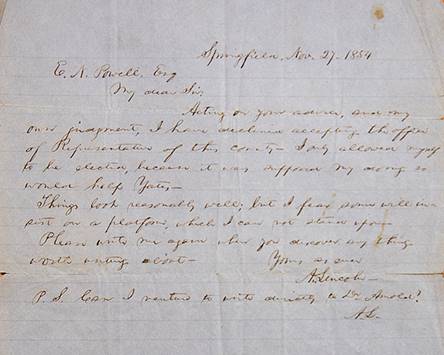 Springfield, Nov. 27. 1854
E. N. Powell, Esq
My dear Sir:
Acting on your advice, and my
own judgment, I have declined accepting the office
of Representative of this county. I only allowed myself
to be elected, because it was supposed my doing so
would help Yates.
Things look reasonably well; but I fear some will in-
sist on a platform, which I can not stand upon.
Please write me again when you discover any thing
worth writing about.
Yours as ever
A. Lincoln
P. S. Can I venture to write directly to Dr Arnold?
A. L.